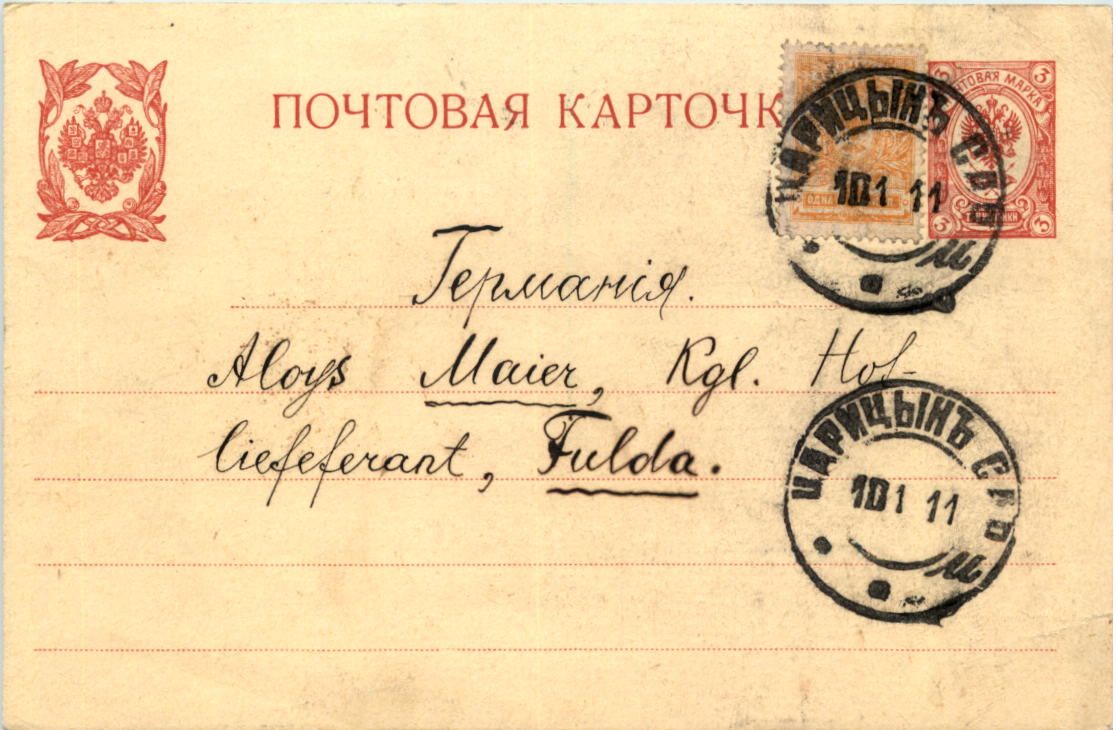 ПОЧТОВАЯ КАРТОЧК
ПОЧТОВАЯ МАРКА
3 3
3 3
ОДНА
ЦАРИЦЫНЪ
10 1 11
Германія.
Aloys Maier, Kgl. Hof-
liefeferant, Fulda.
ЦАРИЦЫНЪ
10 1 11